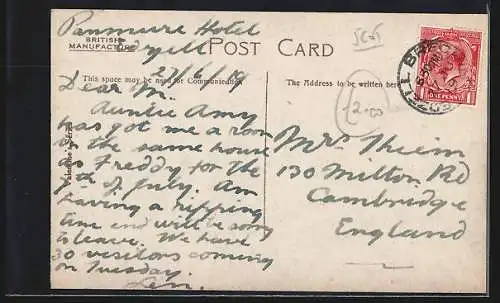 Panmure Hotel
Edzell
27/6/19
BRITISH
MANUFACTURE
POST CARD
This space may be used for Communication.
The Address to be written here.
Dear M.
Auntie Amy
has got me a room
in the same house
as Freddy for the
7th of July. Am
having a ripping
time and will be sorry
to leave. We have
30 visitors coming
on Tuesday.
Len.
Mrs Thiem
130 Milton Rd
Cambridge
England
12-00
ONE PENNY